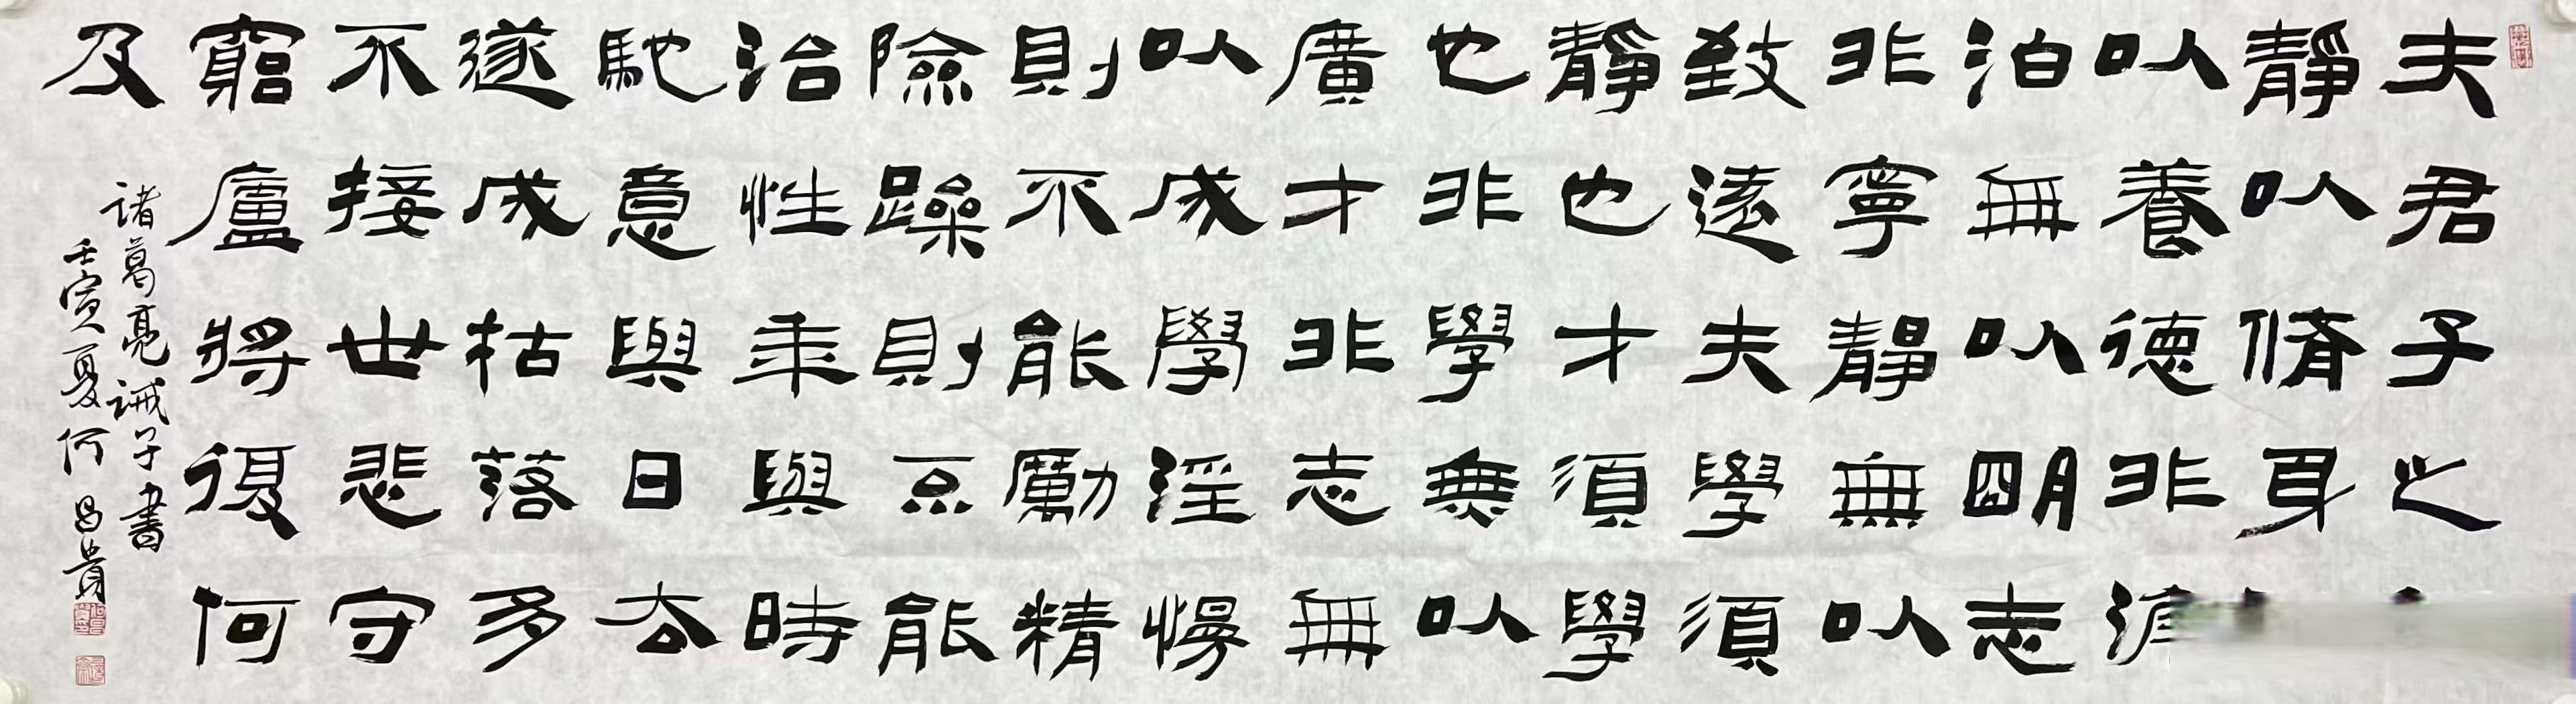 夫君子之
靜以脩身
以養德非
泊無以明志
非寧靜無以
致遠夫學須
靜也才須學
也非學無以
廣才非志無
以成學淫慢
則不能勵精
險躁則不能
治性年與時
馳意與日去
遂成枯落多
不接世悲守
窮廬將復何
及
诸葛亮诫子書
壬寅夏何昌貴